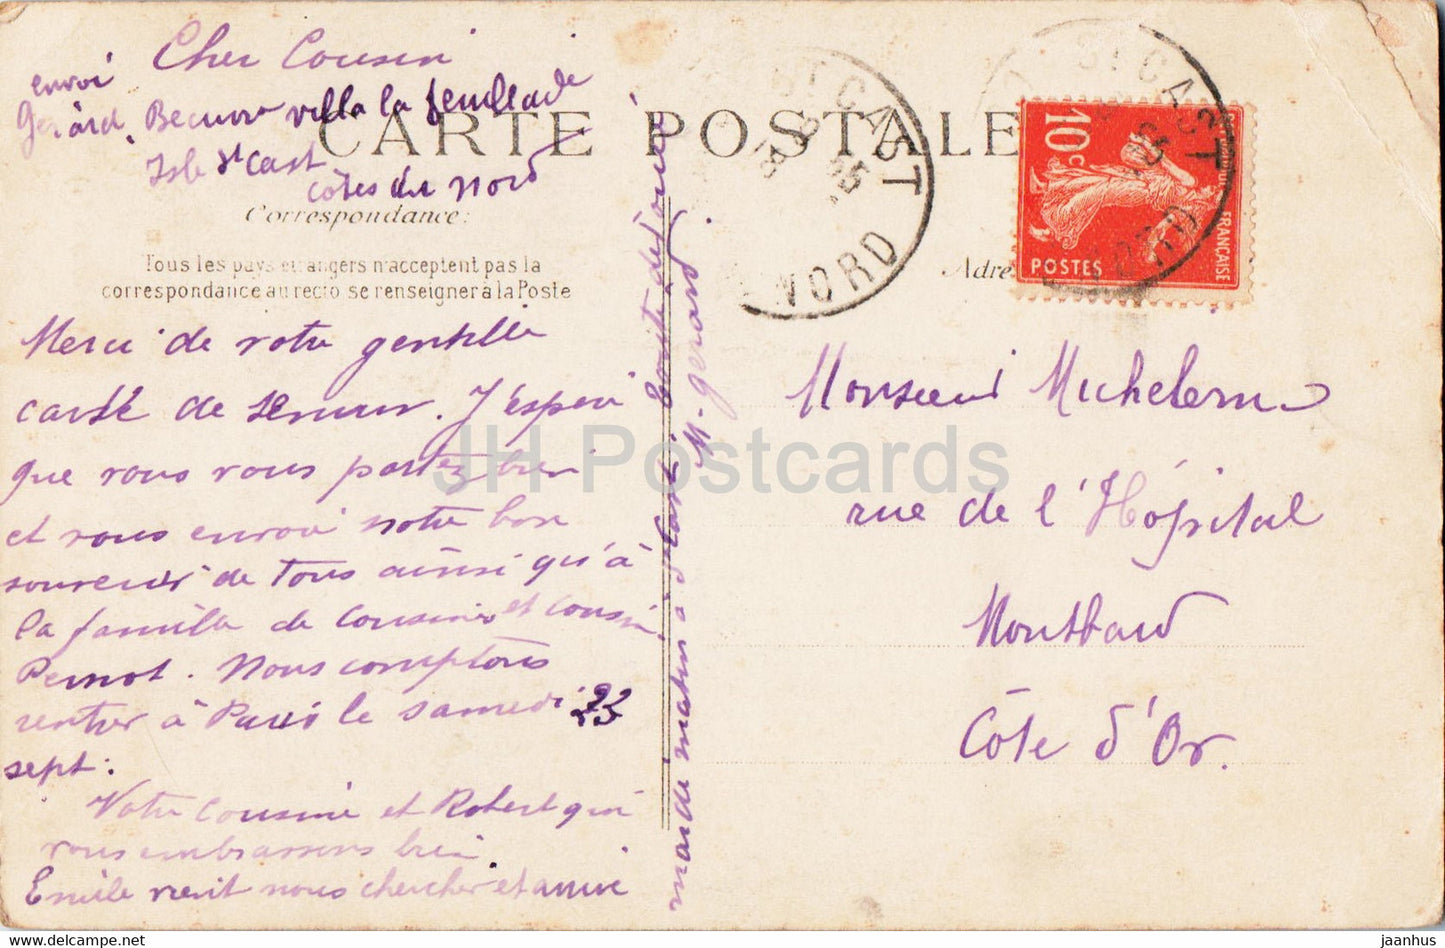 Cher Cousin
envoi
Gérard. villa la feuillade
Isle St Cast
Côtes du Nord
CARTE POSTALE
Correspondance:
Tous les pays étrangers n'acceptent pas la
correspondance au recto se renseigner à la Poste
Merci de votre gentille
carte de semur. J'espère
que vous vous portez bien
et vous envoi notre bon
souvenir de Tous ainsi qu'à
la famille de Cousine et Cousin
Pernot. Nous comptons
rentrer à Paris le samedi 23
sept.
Votre Cousine et Robert qui
vous embrassons bien
Emile vient nous chercher et arrive
mardi matin à St Cast
M. gerard
ST CAST
NORD
ST CAST
NORD
10c
POSTES
FRANÇAISE
Adre
Monsieur
rue de l'Hôpital
Montbard
Côte d'Or.
JH Postcards
https://www.hippostcard.com/store/jaanhus